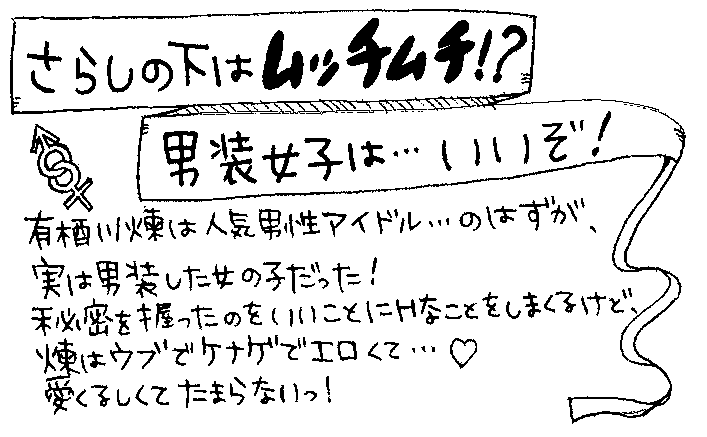 さらしの下はムッチムチ!?
男装女子は…いいぞ!
有栖川煉は人気男性アイドル…のはずが、
実は男装した女の子だった!
秘密を握ったのをいいことにHなことをしまくるけど、
煉はウブでケナゲでエロくて…♡
愛くるしくてたまらないっ!